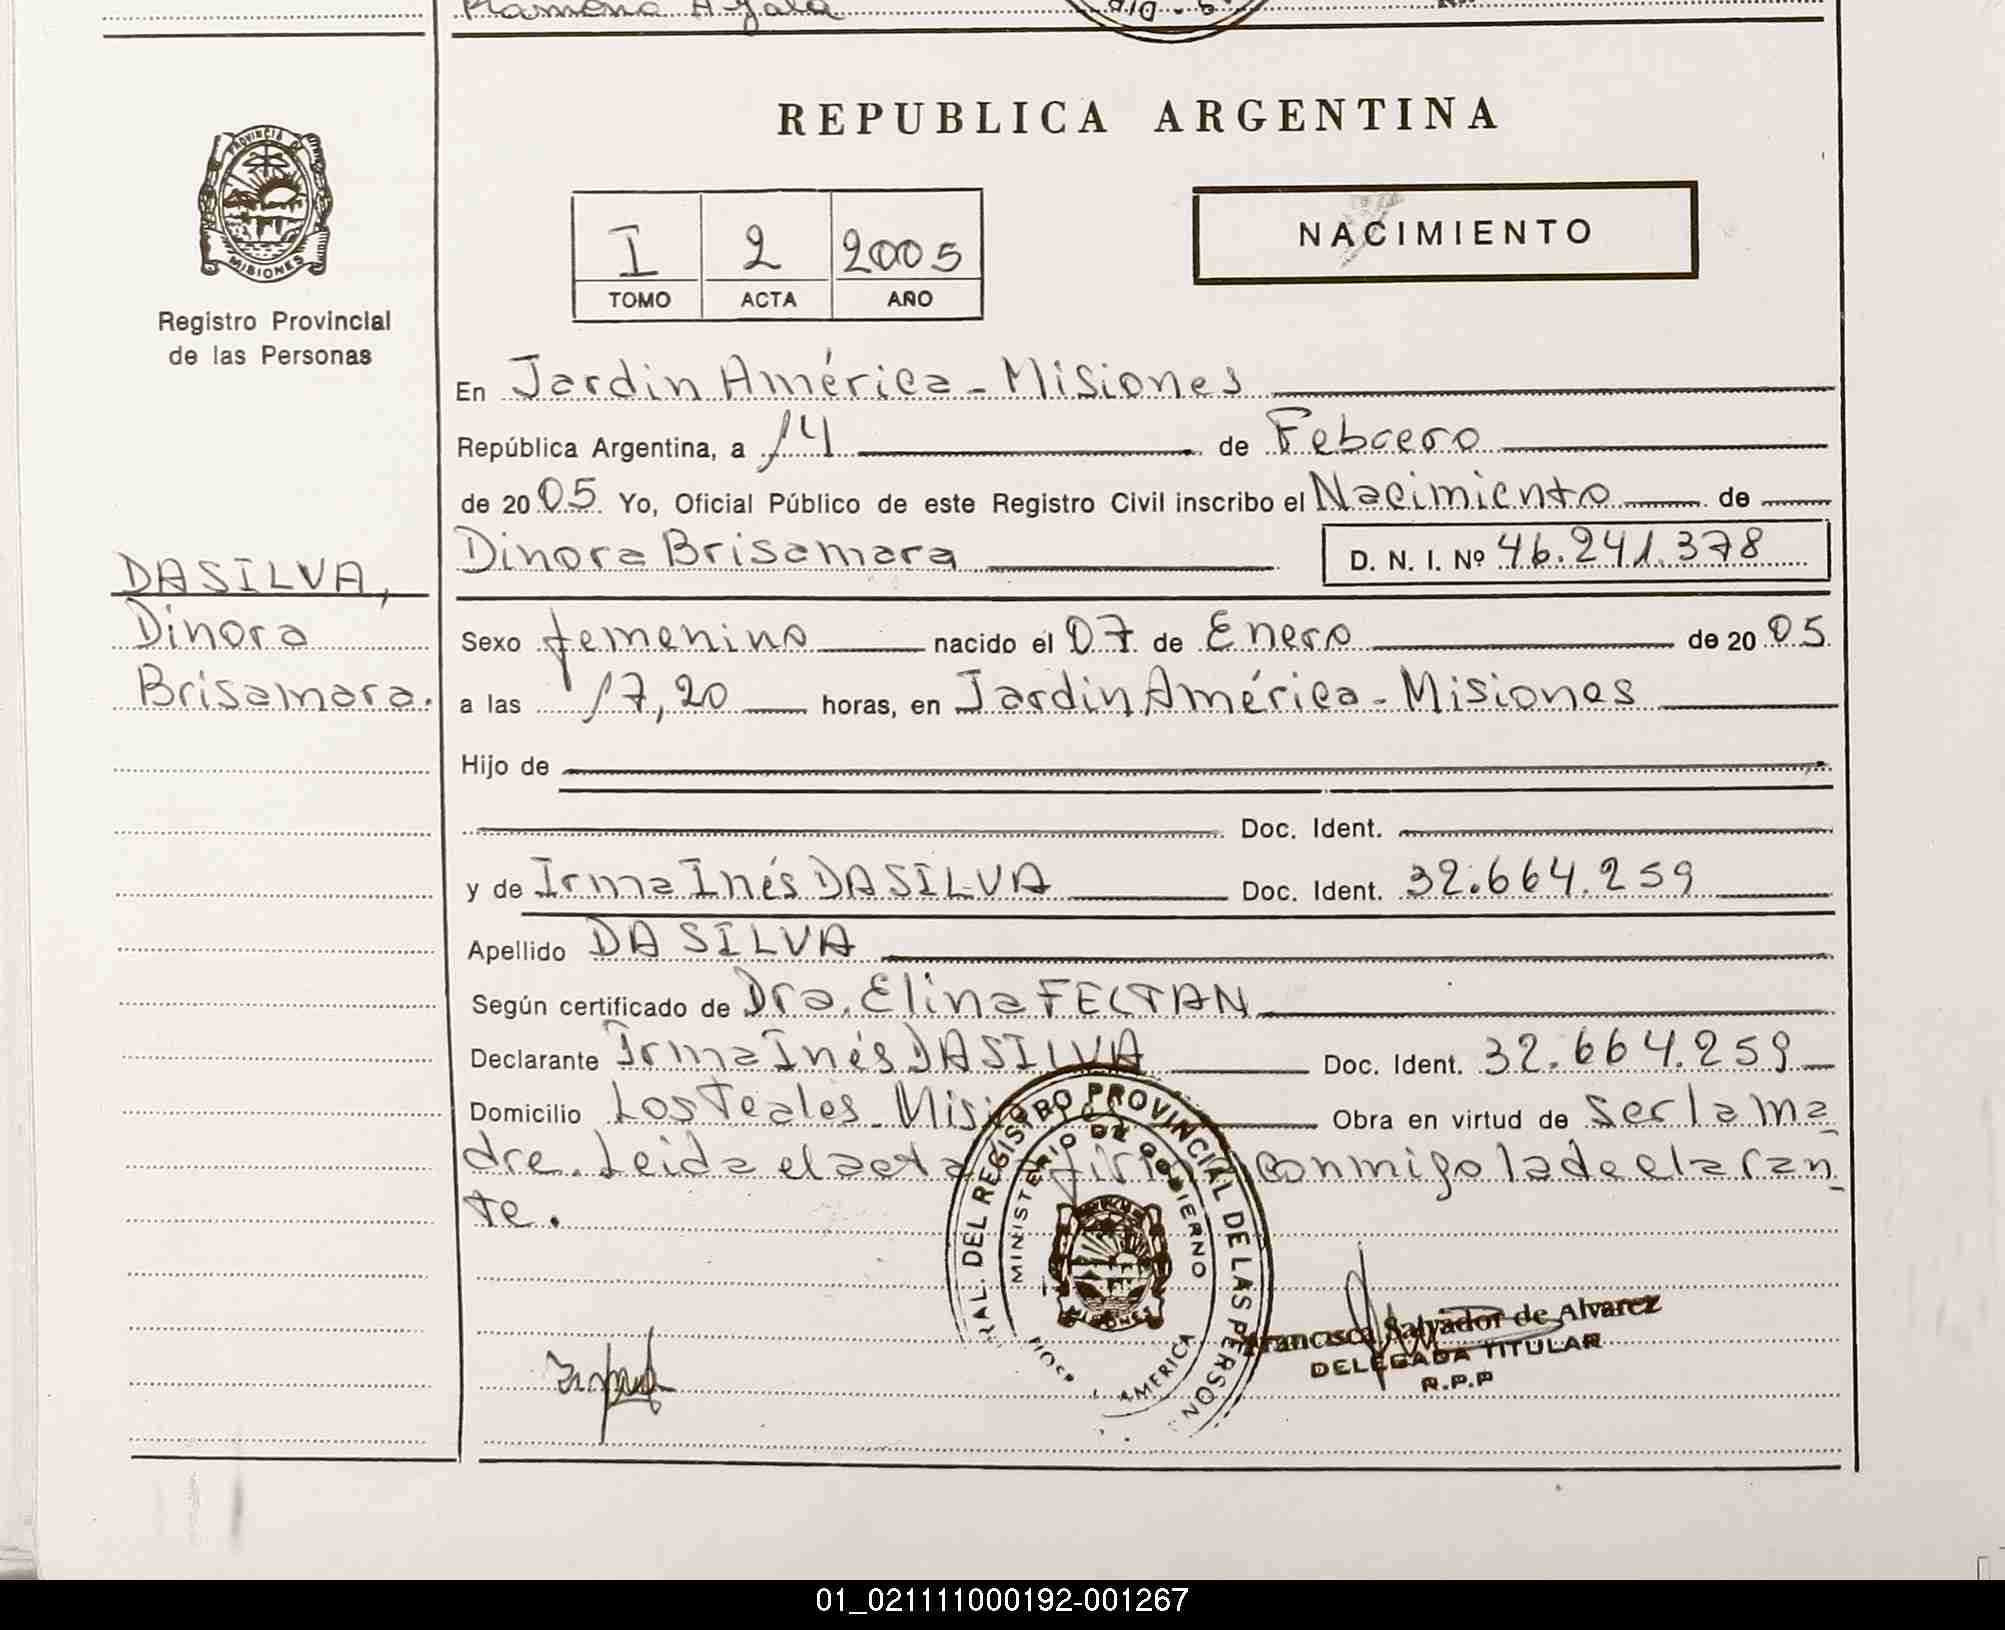 Ramona Ayala
REPUBLICA ARGENTINA
PROVINCIA DE
MISIONES
Registro Provincial
de las Personas
I 2 2005
TOMO ACTA AÑO
NACIMIENTO
En Jardin América - Misiones
República Argentina, a 14 de Febrero
de 2005 Yo, Oficial Público de este Registro Civil inscribo el Nacimiento de
Dinora Brisamara D. N. I. Nº 46.241.378
DA SILVA,
Dinora
Brisamara.
Sexo femenino nacido el 07 de Enero de 2005.
a las 17,20 horas, en Jardin América - Misiones
Hijo de
Doc. Ident.
y de Irma Inés DA SILVA Doc. Ident. 32.664.259
Apellido DA SILVA
Según certificado de Dra. Elina FELTAN
Declarante Irma Inés DA SILVA Doc. Ident. 32.664.259
Domicilio Los Teales - Mis Obra en virtud de ser la ma
dre. Leida el acta firma conmigo la declaran
te.
RAL. DEL REGISTRO PROVINCIAL DE LAS PERSON
MINISTERIO DE GOBIERNO
MISIONES
AMERICA
Francisca Salvador de Alvarez
DELEGADA TITULAR
R.P.P
01_021111000192-001267